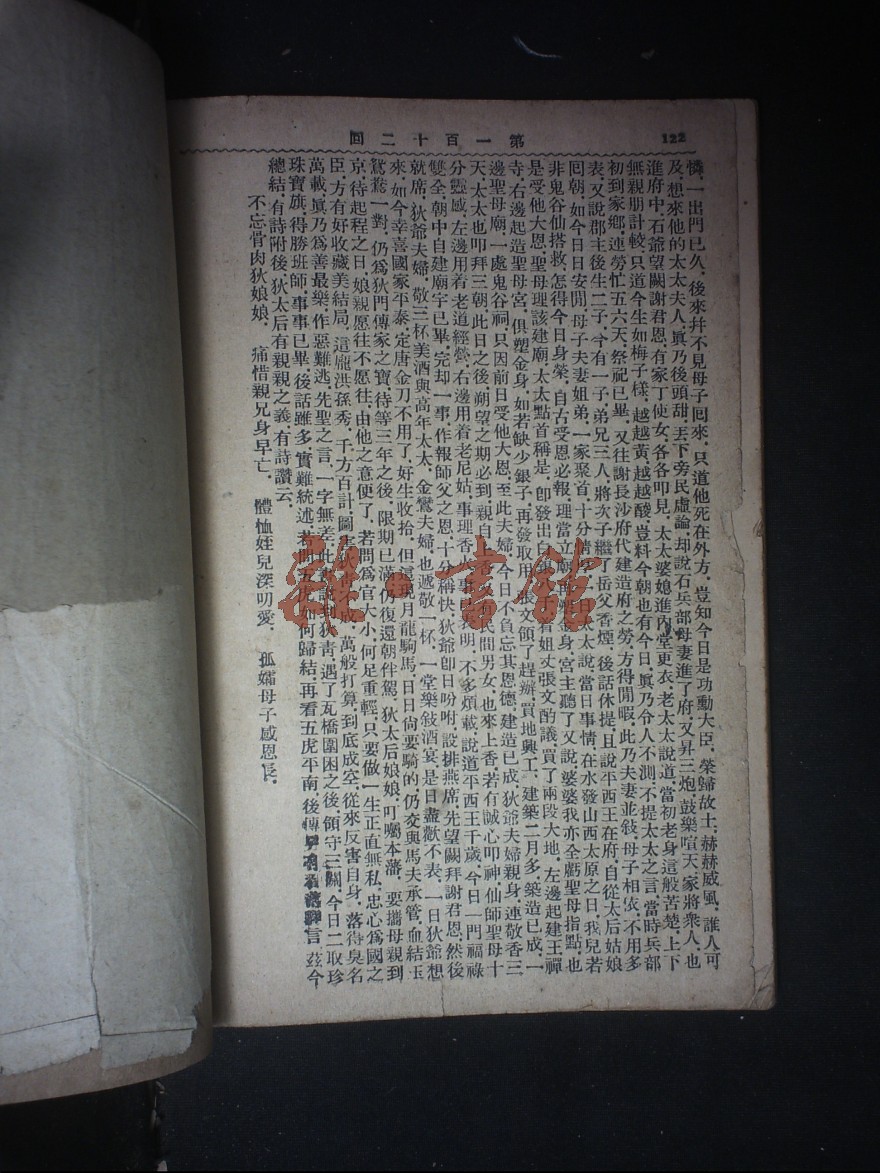 122
第一百十二回
憐、一出門已久、後來幷不見母子回來、只道他死在外方、豈知今日是功勳大臣、榮歸故土、赫赫威風、誰人可
及、想來他的太太夫人、眞乃後頭甜、丟下旁民虛論、却說石兵部母妻進了府、又昇三炮、鼓樂喧天家將衆人、也
進府中、石爺望闕謝君恩、有家丁使女、各各叩見、太太婆媳進內堂更衣、老太太說道、當初老身這般苦楚、上下
無親朋計較、只道今生如梅子樣、越越黃越越酸、豈料今朝也有今日、眞乃令人不測、不提太太之言、當時兵部
初到家鄉、連勞忙五六天、祭祀已畢、又往謝長沙府代建造府之勞、方得閒暇、此乃夫妻並敍、母子相依、不用多
表、又說郡主後生二子、今有一子弟兄三人、將次子繼了岳父香煙、後話休提、且說平西王在府、自從太后姑娘
回朝、如今日日安閒、母子夫妻姐弟、一家聚首、十分情厚、一日太太說當日事情、在水發山西太原之日、我兒若
非鬼谷仙搭救、怎得今日身榮、自古受恩必報、理當立廟再塑金身、宮主聽了又說、婆婆我亦全虧聖母指點、也
是受他大恩、聖母理該建廟、太太點首稱是、卽發出白銀 着姐丈張文酌議、買了兩段大地、左邊起建王禪
寺、右邊起造聖母宮、俱塑金身、如若缺少銀子、再發取用、張文領了趕辦、買地興工、建築二月多、築造已成、一
邊聖母廟、一處鬼谷祠、只因前日受他大恩、至此夫婦 今日不負忘其恩德、建造已成、狄爺夫婦親身、連敬香三
天、太太也叩拜三朝、此日之後、朔望之期、必到親自 香、又有民間男女、也來上香、若有誠心叩神、仙師聖母十
分靈感、左邊用着老道經營、右邊用着老尼姑、事理香 事已表明、不多煩載、說道平西王千歲、今日一門福祿
雙全、朝中自建廟宇已畢、完却一事、作報師父之恩、十分稱快、狄爺卽日吩咐、設排燕席、先望闕拜謝君恩、然後
就席、狄爺夫婦、敬三杯美酒與高年太太、金鸞夫婦、也遞敬一杯、一堂樂敍酒宴、是日盡歡不表、一日狄爺想
來、如今幸喜國家平泰、定唐金刀不用了、好生收拾、但這現月龍駒馬、日日尙要騎的、仍交與馬夫承管、血結玉
鴛鴦一對、仍爲狄門傳家之寶、待等三年之後、限期已滿、仍復還朝伴駕、狄太后娘娘、叮囑本藩、要攜母親到
京、待起程之日、娘親愿往不愿往、由他之意便了、若問爲官大小、何足重輕、只要做一生正直無私、忠心爲國之
臣、方有好收藏美結局、這龐洪孫秀、千方百計、圖害狄青不成、萬般打算、到底成空、從來反害自身、落待臭名
萬載、眞乃爲善最樂、作惡難逃、先聖之言、一字無差、此 說到狄青、遇了瓦橋圍困之後、領守三關、今日二取珍
珠寶旗、得勝班師、事事已畢、後話雖多、實難統述、若問五虎如何歸結、再看五虎平南、後傳 言、茲今
總結、有詩附後、狄太后有親親之義、有詩讚云、
不忘骨肉狄娘娘、　痛惜親兄身早亡、　體恤姪兒深叨愛、　孤孀母子感恩長、
雜·書館